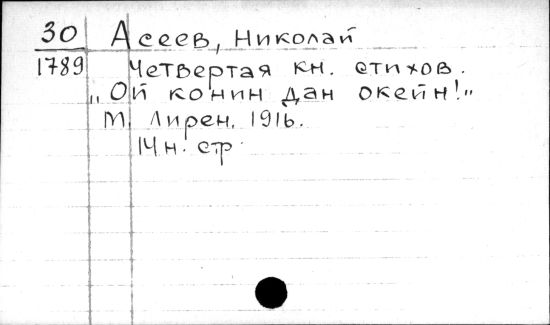 30 Асеев, Николай
1789 Четвертая кн. стихов.
„Ой конин дан окейн!"
М. Лирен. 1916.
14 н. стр.